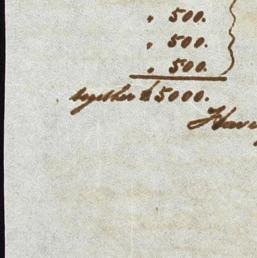 " 500.
" 500.
" 500.
together $5000.